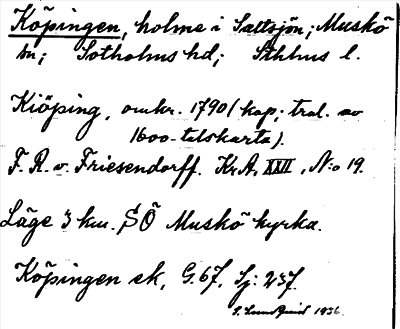 Köpingen, holme i Saltsjön; Muskö
sn; Sotholms hd; Sthlms l.
Kiöping, omkr. 1790 (kop; trol. av
1600-talskarta).
F. R. v. Friesendorff. Kr.A. XXII, N:o 19.
Läge 3 km. SÖ Muskö kyrka.
Köpingen ek, G. 67, Sj: 237.
S. Lundqvist 1936